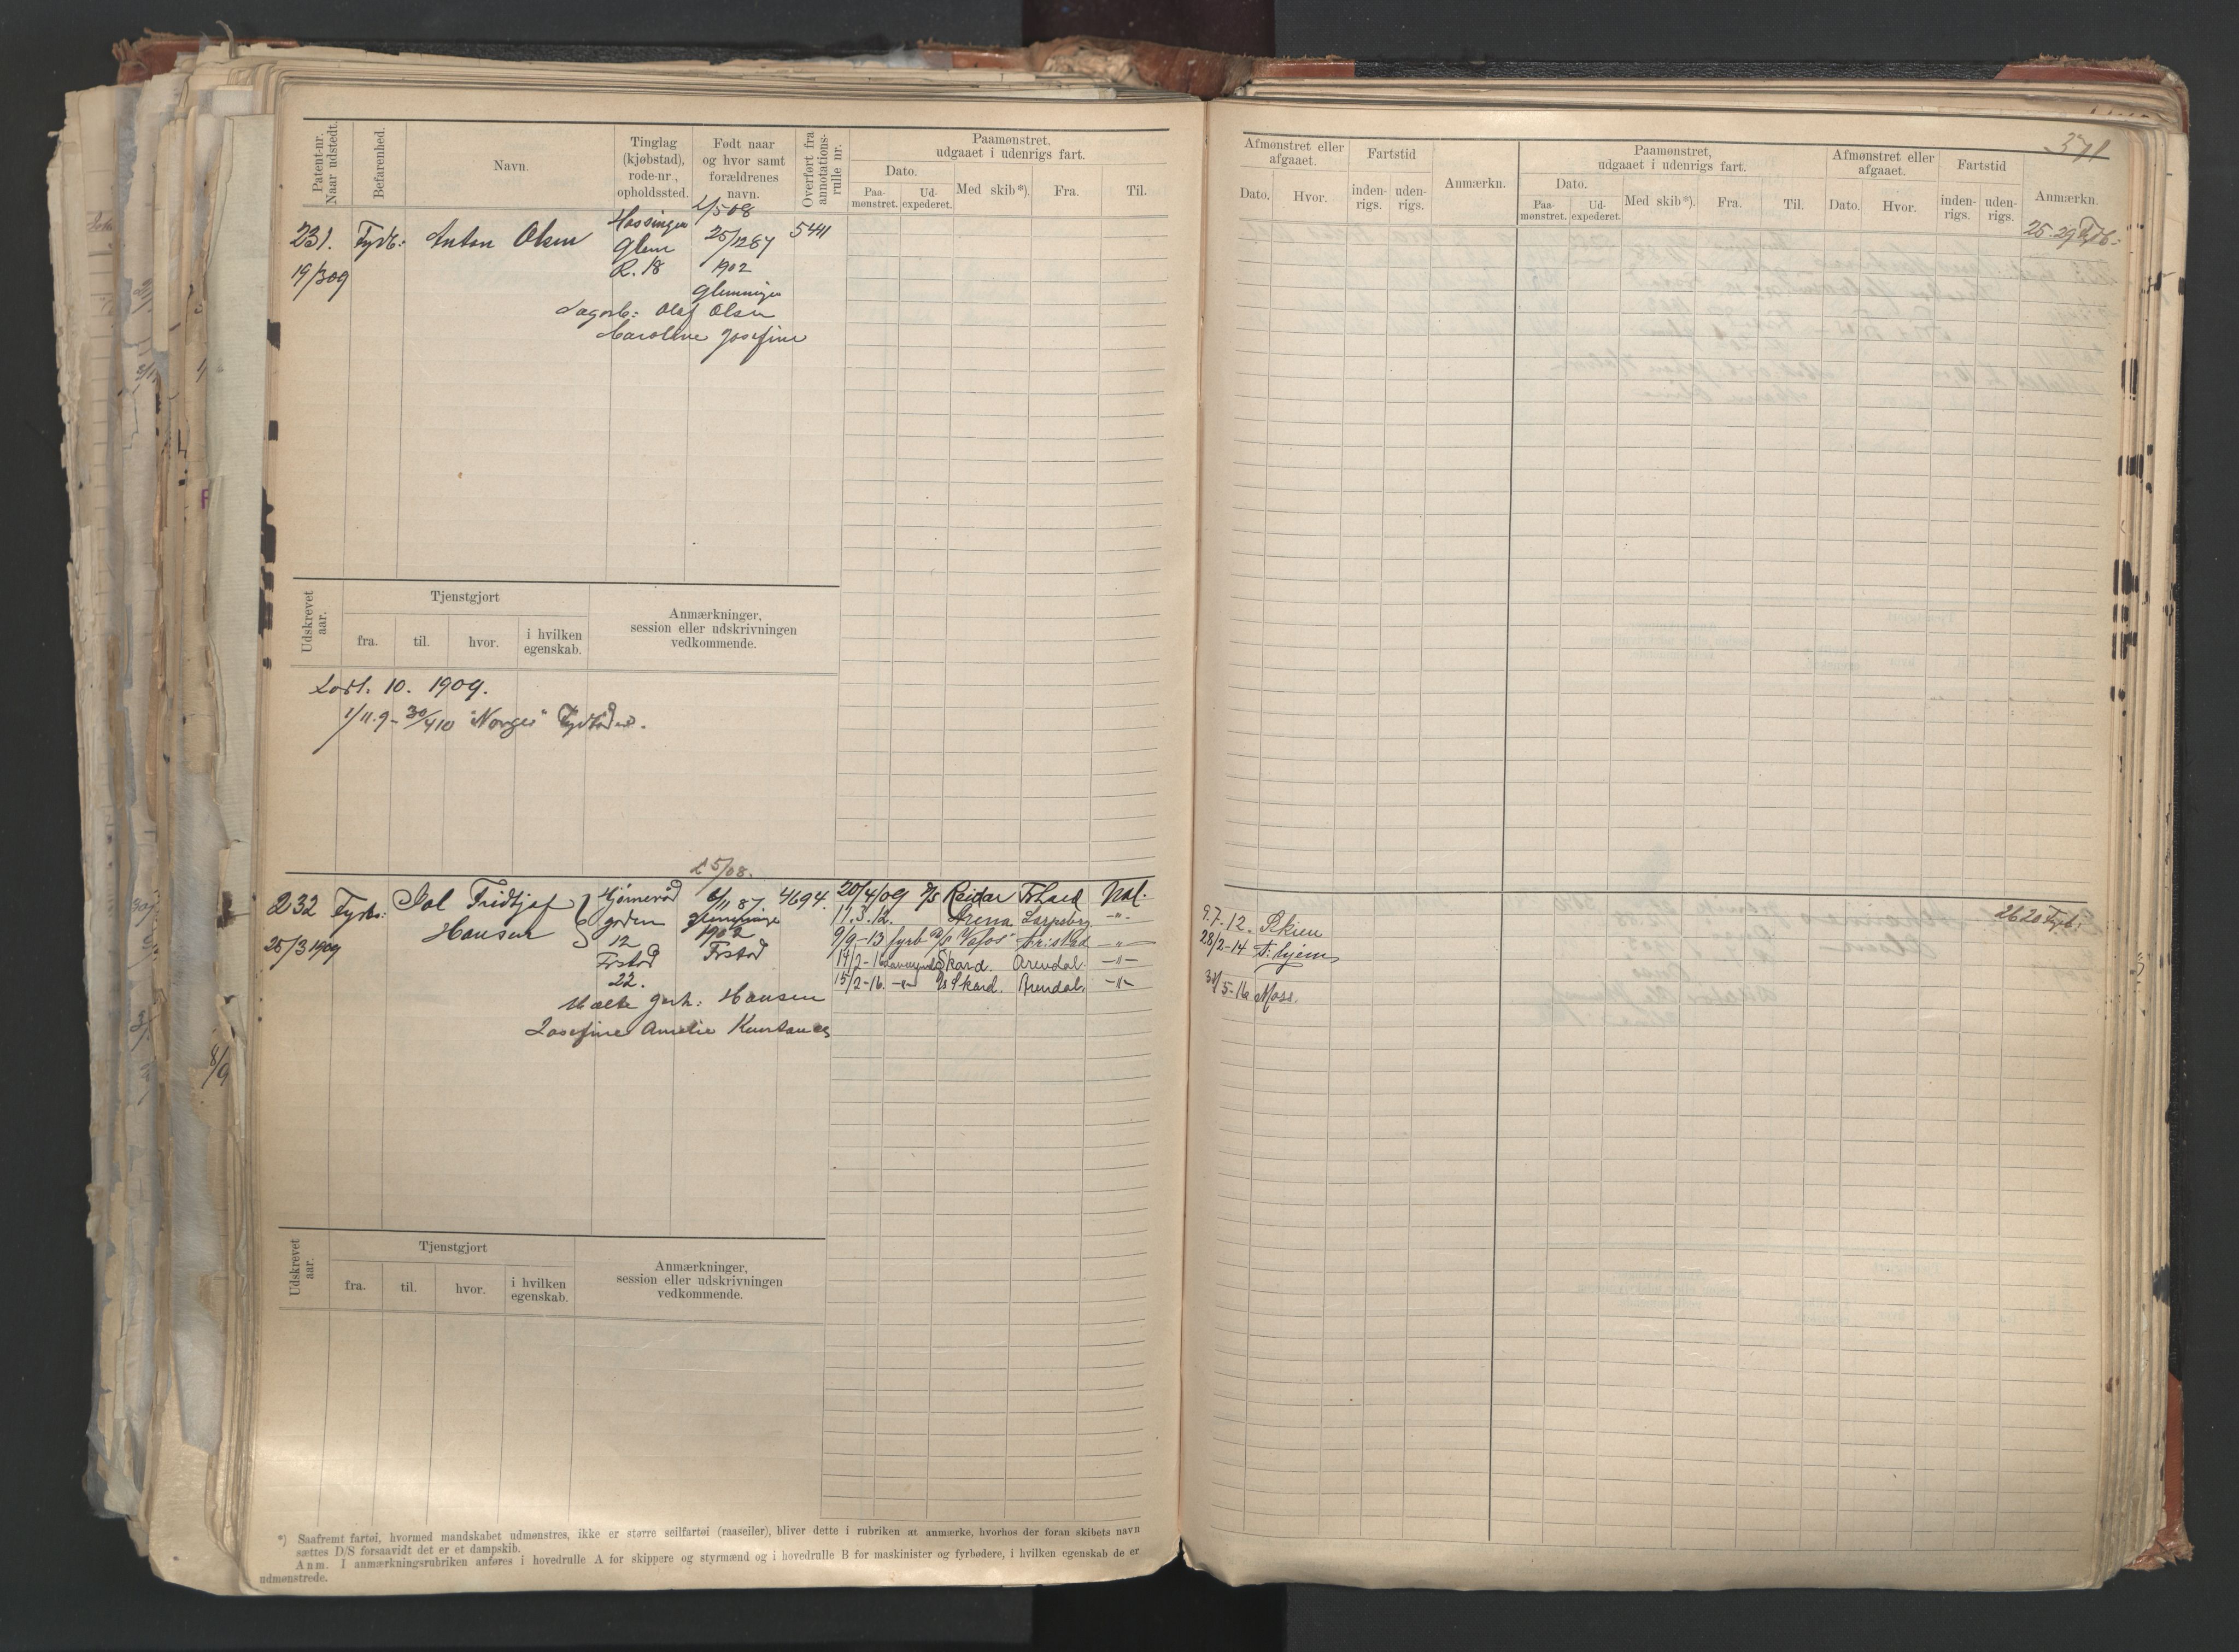 Patent-nr. Naar udstedt.
Befarenhed.
Navn.
Tinglag (kjøbstad), rode-nr., opholdssted.
Født naar og hvor samt forældrenes navn.
Overført fra annotations-rulle nr.
Paamønstret, udgaaet i udenrigs fart.
Dato.
Paa-mønstret.
Ud-expederet.
Med skib*).
Fra.
Til.
231. Fyrb: Anton Olsen
Glem
R. 18
25/12 87
1902
5441
19/3 09
Olaf Olsen
Karoline Josefine
Udskrevet aar.
Tjenstgjort
fra. til. hvor. i hvilken egenskab.
Anmærkninger, session eller udskrivningen vedkommende.
10. 1909.
1/11.9 - 30/4 10 "Norge"
5/08.
232 Fyrb: Fridtjof Hansen
12
22.
1902
4694.
25/3 1909
Hansen
Josefine Amelie
20/4/09 D/S Reidar
11.3.12. Arena Sarpsborg -"-
9/9-13 fyrb D/S Vafos -"-
Skard. Arendal. -"-
15/2-16. -"- D/S Skard. Arendal. -"-
Udskrevet aar.
Tjenstgjort
fra. til. hvor. i hvilken egenskab.
Anmærkninger, session eller udskrivningen vedkommende.
*) Saafremt fartøi, hvormed mandskabet udmønstres, ikke er større seilfartøi (raaseiler), bliver dette i rubriken at anmærke, hvorhos der foran skibets navn
sættes D/S forsaavidt det er et dampskib.
Anm. I anmærkningsrubriken anføres i hovedrulle A for skippere og styrmænd og i hovedrulle B for maskinister og fyrbødere, i hvilken egenskab de er
udmønstrede.
371
Afmønstret eller afgaaet.
Dato. Hvor.
Fartstid
inden-rigs. uden-rigs.
Anmærkn.
Paamønstret, udgaaet i udenrigs fart.
Dato.
Paa-mønstret.
Ud-expederet.
Med skib*).
Fra.
Til.
Afmønstret eller afgaaet.
Dato. Hvor.
Fartstid
inden-rigs. uden-rigs.
Anmærkn.
25.29 Fyrb:
9.7.12. Skien
28/2-14 T: hjem
5-16 Moss.
2620 Fyrb: